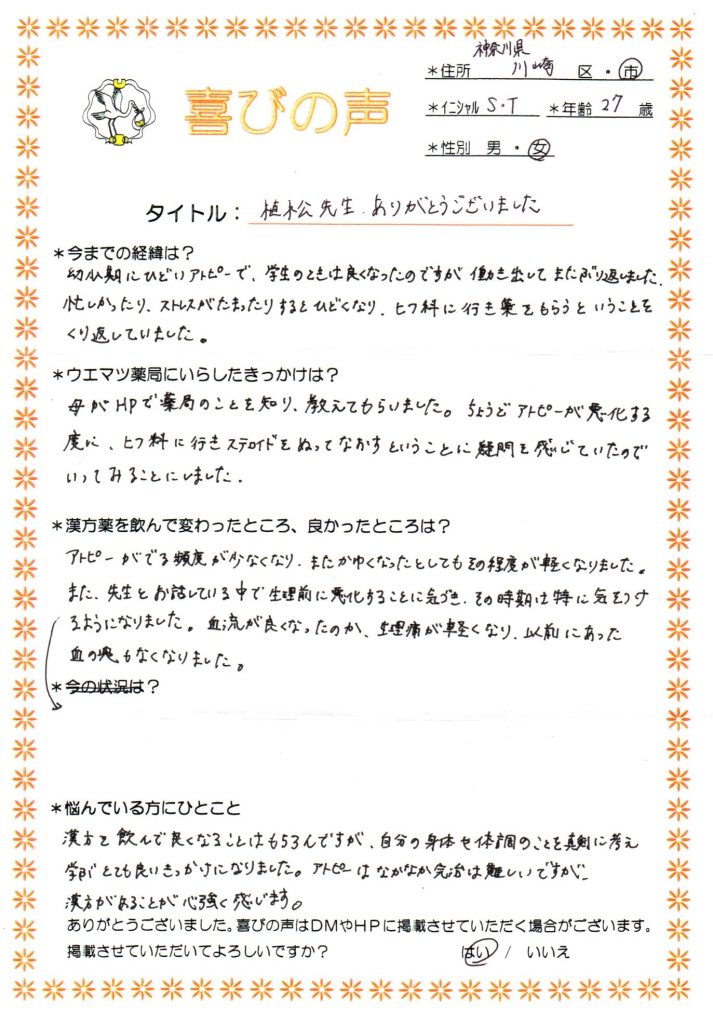 神奈川県
*住所 川崎 区・市
喜びの声
*イニシャル S・T *年齢 27 歳
*性別 男・女
タイトル: 植松先生.ありがとうございました
*今までの経緯は?
幼少期にひどいアトピーで、学生のときは良くなったのですが働き出してまたぶり返しました。
忙しかったり、ストレスがたまったりするとひどくなり、ヒフ科に行き薬をもらうということを
くり返していました。
*ウエマツ薬局にいらしたきっかけは?
母がHPで薬局のことを知り、教えてもらいました。ちょうどアトピーが悪化する
度に、ヒフ科に行きステロイドをぬってなおすということに疑問を感じていたので
いってみることにしました.
*漢方薬を飲んで変わったところ、良かったところは?
アトピーがでる頻度が少なくなり、またかゆくなったとしてもその程度が軽くなりました。
また、先生とお話している中で生理前に悪化することに気づき、その時期は特に気をつけ
るようになりました。血流が良くなったのか、生理痛が軽くなり、以前にあった
血の塊もなくなりました。
*今の状況は?
*悩んでいる方にひとこと
漢方を飲んで良くなることはもちろんですが、自分の身体や体調のことを真剣に考え
学ぶとても良いきっかけになりました。アトピーはなかなか完治は難しいですが
漢方があることが心強く感じます。
ありがとうございました。喜びの声はDMやHPに掲載させていただく場合がございます。
掲載させていただいてよろしいですか? はい / いいえ